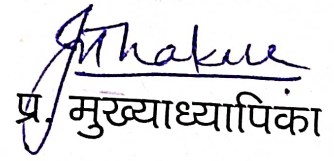 JThakur
प्र. मुख्याध्यापिका